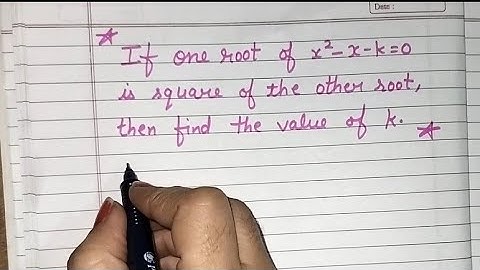 Date :
If one root of x²-x-k=0
is square of the other root,
then find the value of k.